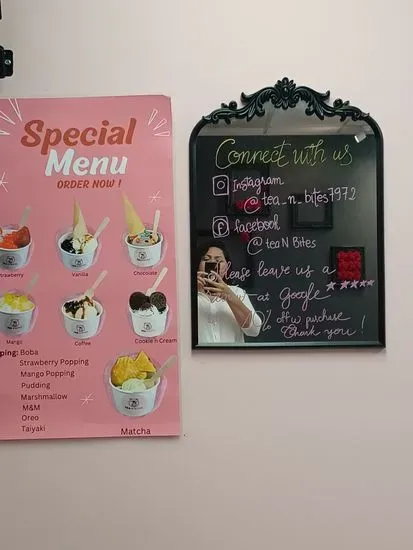 Special
Menu
ORDER NOW !
Strawberry
Vanilla
Chocolate
Mango
Coffee
Cookie n Cream
pping: Boba
Strawberry Popping
Mango Popping
Pudding
Marshmallow
M&M
Oreo
Taiyaki
Matcha
Connect with us
Instagram
@ tea_n_bites7972
facebook
@ tea N Bites
Please leave us a
at Google
% off w purchase
Thank you !